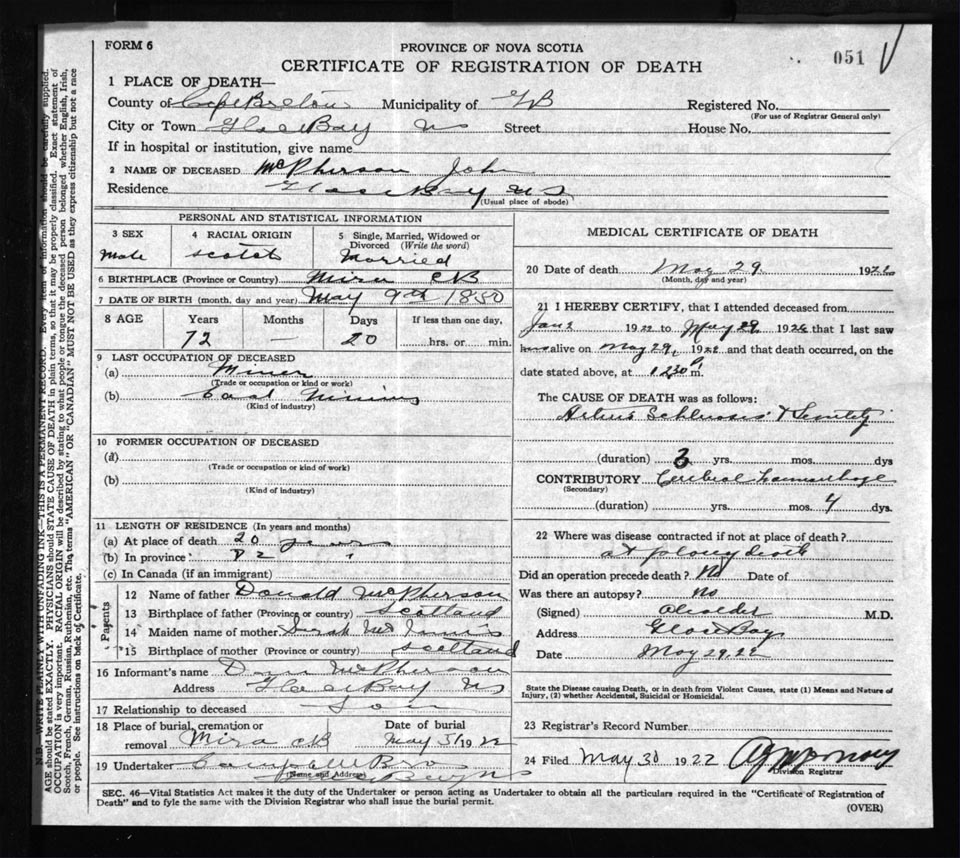 FORM 6
PROVINCE OF NOVA SCOTIA
051
CERTIFICATE OF REGISTRATION OF DEATH
1 PLACE OF DEATH—
County of Cape Breton Municipality of GB Registered No.
(For use of Registrar General only)
City or Town Glace Bay NS Street House No.
If in hospital or institution, give name
2 NAME OF DECEASED McPherson John
Residence Glace Bay NS
(Usual place of abode)
PERSONAL AND STATISTICAL INFORMATION
3 SEX 4 RACIAL ORIGIN 5 Single, Married, Widowed or Divorced (Write the word)
Male Scotch Married
6 BIRTHPLACE (Province or Country) Mira CB
7 DATE OF BIRTH (month, day and year) May 9th 1850
8 AGE Years Months Days If less than one day,
72 — 20 hrs. or min.
9 LAST OCCUPATION OF DECEASED
(a) Miner
(Trade or occupation or kind of work)
(b) Coal Mining
(Kind of industry)
10 FORMER OCCUPATION OF DECEASED
(a)
(Trade or occupation or kind of work)
(b)
(Kind of industry)
11 LENGTH OF RESIDENCE (In years and months)
(a) At place of death 20 years
(b) In province 72 "
(c) In Canada (if an immigrant)
Parents
12 Name of father Donald McPherson
13 Birthplace of father (Province or country) Scotland
14 Maiden name of mother Sarah McInnis
15 Birthplace of mother (Province or country) Scotland
16 Informant's name McPherson
Address Glace Bay NS
17 Relationship to deceased Son
18 Place of burial, cremation or removal Mira CB Date of burial May 31 1922
19 Undertaker Campbell Bros
(Name and Address) Glace Bay NS
MEDICAL CERTIFICATE OF DEATH
20 Date of death May 29 1922
(Month, day and year)
21 I HEREBY CERTIFY, that I attended deceased from
Jan 2 1922 to May 29 1922 that I last saw
him alive on May 29, 1922 and that death occurred, on the
date stated above, at 1230 P m.
The CAUSE OF DEATH was as follows:
Arterio Schlerosis & Senility
(duration) 3 yrs. mos. dys
CONTRIBUTORY Cerebral haemorrhage
(Secondary)
(duration) yrs. mos. 4 dys.
22 Where was disease contracted if not at place of death?
at place of death
Did an operation precede death? No Date of
Was there an autopsy? No
(Signed) M.D.
Address Glace Bay
Date May 29, 22
State the Disease causing Death, or in death from Violent Causes, state (1) Means and Nature of
Injury, (2) whether Accidental, Suicidal or Homicidal.
23 Registrar's Record Number
24 Filed May 30 1922
Division Registrar
SEC. 46—Vital Statistics Act makes it the duty of the Undertaker or person acting as Undertaker to obtain all the particulars required in the "Certificate of Registration of
Death" and to fyle the same with the Division Registrar who shall issue the burial permit.
(OVER)
N.B. WRITE PLAINLY WITH UNFADING INK—THIS IS A PERMANENT RECORD. Every item of information should be carefully supplied.
AGE should be stated EXACTLY. PHYSICIANS should STATE CAUSE OF DEATH in plain terms, so that it may be properly classified. Exact statement of
OCCUPATION is very important. RACIAL ORIGIN will be described by stating to what people or tongue the deceased person belonged whether English, Irish,
Scotch, French, German, Russian, Ruthenian, etc. The terms "AMERICAN" OR "CANADIAN" MUST NOT BE USED as they express citizenship but not a race
or people. See instructions on back of Certificate.